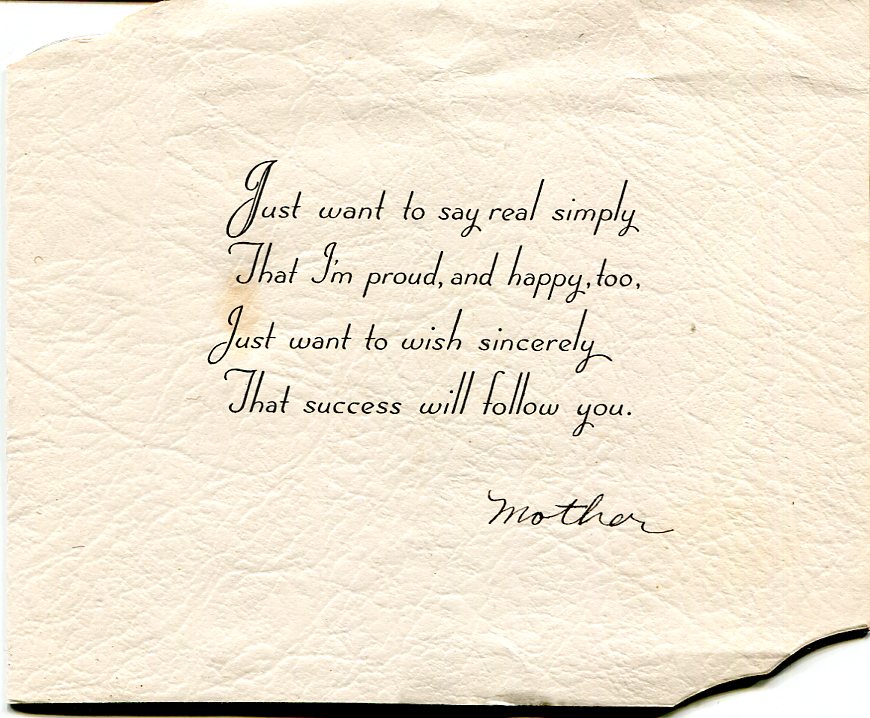 Just want to say real simply
That I'm proud, and happy, too,
Just want to wish sincerely
That success will follow you.
Mother